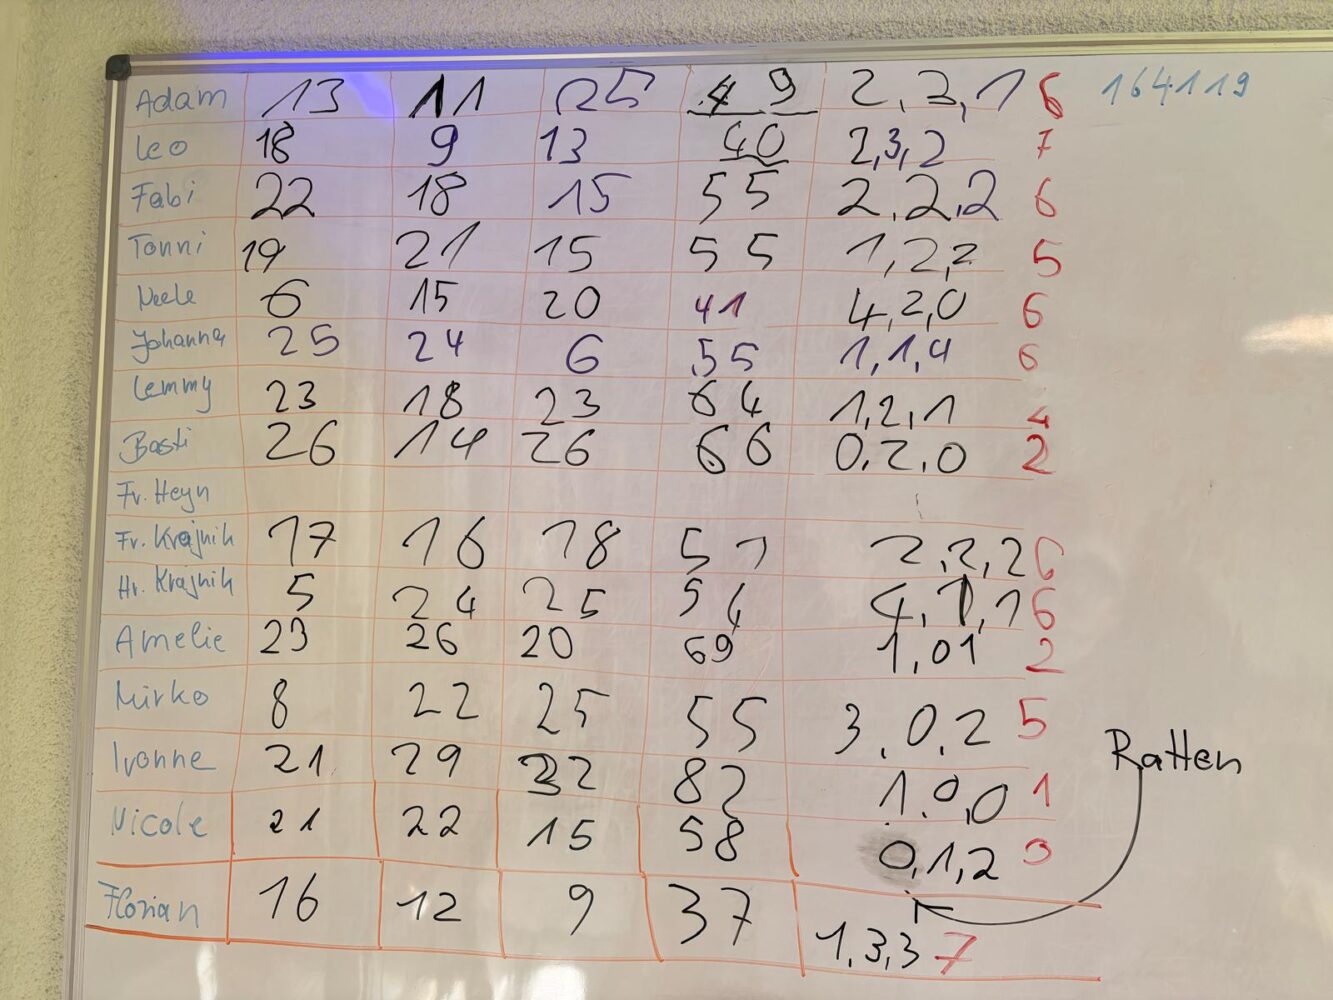 Adam 13 11 25 49 2,3,1 6 164119
Leo 18 9 13 40 2,3,2 7
Fabi 22 18 15 55 2,2,2 6
Tonni 19 21 15 55 1,2,2 5
Neele 6 15 20 41 4,2,0 6
Johanna 25 24 6 55 1,1,4 6
Lemmy 23 18 23 64 1,2,1 4
Basti 26 14 26 66 0,2,0 2
Fr. Heyn
Fr. Krajnik 17 16 18 51 2,2,2 6
Hr. Krajnik 5 24 25 54 4,1,1 6
Amelie 23 26 20 69 1,01 2
Mirko 8 22 25 55 3,0,2 5
Ratten
Ivonne 21 29 32 82 1,0,0 1
Nicole 21 22 15 58 0,1,2 3
Florian 16 12 9 37 1,3,3 7